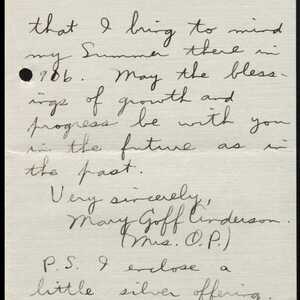 that I bring to mind
my Summer there in
1906. May the bless-
ings of growth and
progress be with you
in the future as in
the past.
Very sincerely,
Mary Goff Anderson.
(Mrs. O.P.)
P.S. I enclose a
little silver offering.